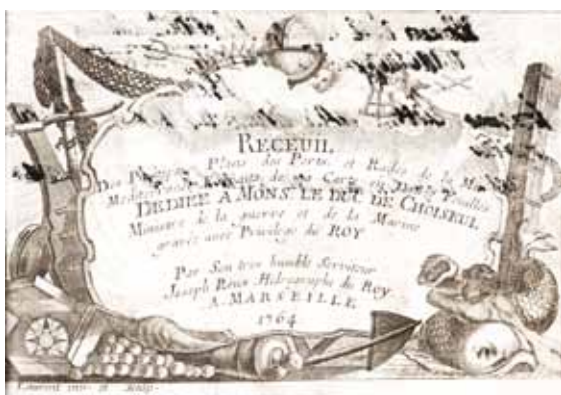 RECEUIL
Des Principaux Plans des Ports et Rades de la Mer
Mediterranée Extraits de ma Carte en Douze Feuilles
DEDIÉE A MONSR. LE DUC DE CHOISEUL
Ministre de la guerre et de la Marine
gravée avec Privilege du ROY
Par Son tres humble Serviteur
Joseph Roux Hidrographe du Roy
A MARSEILLE
1764
Laurent inv. et Sculp.